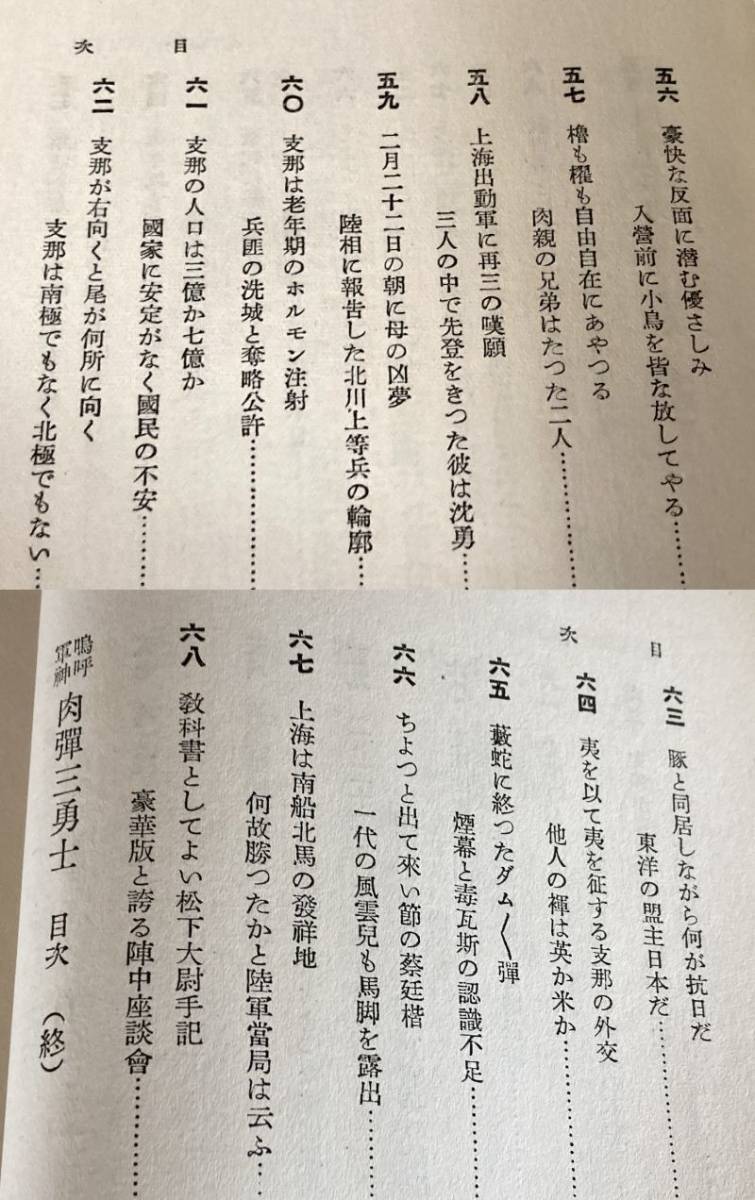 目次
五六 豪快な反面に潜む優さしみ
入營前に小鳥を皆な放してやる……
五七 櫓も櫂も自由自在にあやつる
肉親の兄弟はたつた二人…………
五八 上海出動軍に再三の嘆願
三人の中で先登をきつた彼は沈勇…
五九 二月二十二日の朝に母の凶夢
陸相に報告した北川上等兵の輪廓…
六〇 支那は老年期のホルモン注射
兵匪の洗城と奪略公許……………
六一 支那の人口は三億か七億か
國家に安定がなく國民の不安………
六二 支那が右向くと尾が何所に向く
支那は南極でもなく北極でもない…
目次
六三 豚と同居しながら何が抗日だ
東洋の盟主日本だ……………
六四 夷を以て夷を征する支那の外交
他人の褌は英か米か……………
六五 藪蛇に終つたダム〱彈
煙幕と毒瓦斯の認識不足…………
六六 ちよつと出て來い節の蔡廷楷
一代の風雲兒も馬脚を露出………
六七 上海は南船北馬の發祥地
何故勝つたかと陸軍當局は云ふ…
六八 敎科書としてよい松下大尉手記
豪華版と誇る陣中座談會…………
嗚呼軍神 肉彈三勇士 目次 （終）